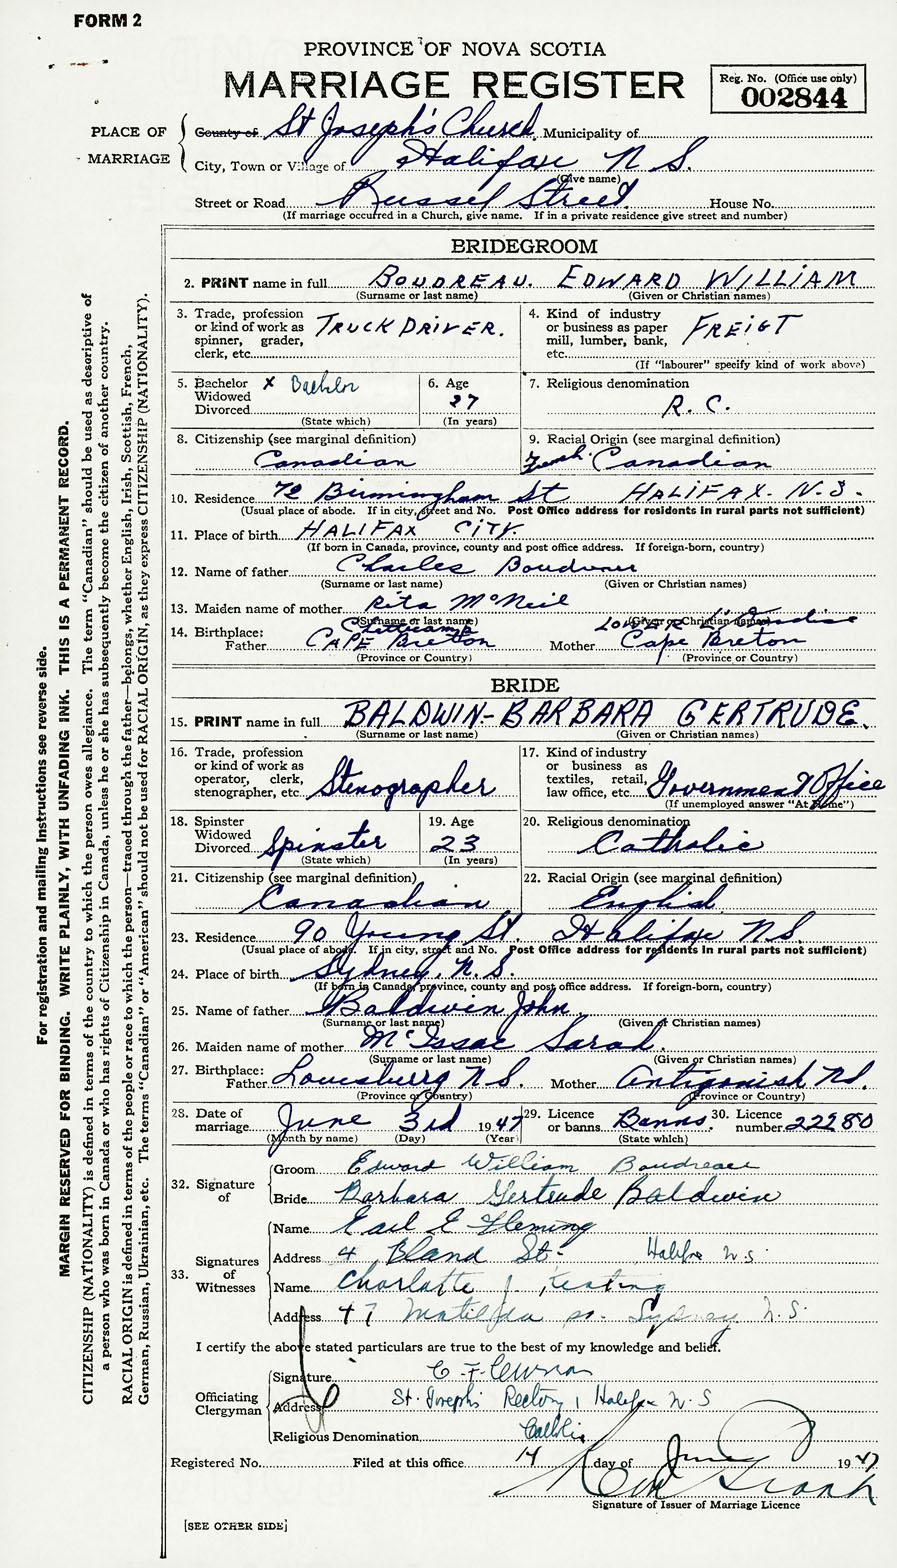 FORM 2
PROVINCE OF NOVA SCOTIA
MARRIAGE REGISTER
Reg. No. (Office use only)
002844
PLACE OF MARRIAGE
County of St Joseph's Church Municipality of
City, Town or Village of Halifax N.S.
(Give name)
Street or Road Russel Street House No.
(If marriage occurred in a Church, give name. If in a private residence give street and number)
BRIDEGROOM
2. PRINT name in full BOUDREAU. EDWARD WILLIAM
(Surname or last name) (Given or Christian names)
3. Trade, profession or kind of work as spinner, grader, clerk, etc. TRUCK DRIVER.
4. Kind of industry or business as paper mill, lumber, bank, etc. FREIGT
(If "labourer" specify kind of work above)
5. Bachelor Widowed Divorced x Bachelor
(State which)
6. Age 27
(In years)
7. Religious denomination R.C.
8. Citizenship (see marginal definition) Canadian
9. Racial Origin (see marginal definition) Canadian
10. Residence 72 Birmingham St HALIFAX. N.S.
(Usual place of abode. If in city, street and No. Post Office address for residents in rural parts not sufficient)
11. Place of birth HALIFAX CITY.
(If born in Canada, province, county and post office address. If foreign-born, country)
12. Name of father Charles Boudreau
(Surname or last name) (Given or Christian names)
13. Maiden name of mother Rita McNeil
(Surname or last name) (Given or Christian names)
14. Birthplace: Father Cheticamp CAPE Breton Mother LOWER L'Ardoise Cape Breton
(Province or Country) (Province or Country)
BRIDE
15. PRINT name in full BALDWIN-BARBARA GERTRUDE.
(Surname or last name) (Given or Christian names)
16. Trade, profession or kind of work as operator, clerk, stenographer, etc. Stenographer
17. Kind of industry or business as textiles, retail, law office, etc. Government Office
(If unemployed answer "At Home")
18. Spinster Widowed Divorced Spinster
(State which)
19. Age 23
(In years)
20. Religious denomination Catholic
21. Citizenship (see marginal definition) Canadian
22. Racial Origin (see marginal definition) English
23. Residence 90 Young St. Halifax N.S.
(Usual place of abode. If in city, street and No. Post Office address for residents in rural parts not sufficient)
24. Place of birth Sydney, N.S.
(If born in Canada, province, county and post office address. If foreign-born, country)
25. Name of father Baldwin John
(Surname or last name) (Given or Christian names)
26. Maiden name of mother McIssac Sarah.
(Surname or last name) (Given or Christian names)
27. Birthplace: Father Louisburg N.S. Mother Antigonish N.S.
(Province or Country) (Province or Country)
28. Date of marriage June 3rd 1947
(Month by name) (Day) (Year)
29. Licence or banns Banns.
(State which)
30. Licence number 22280
32. Signature of
Groom Edward William Boudreau
Bride Barbara Gertrude Baldwin
33. Signatures of Witnesses
Name Earl E Fleming
Address 4 Bland St- Halifax N.S.
Name Charlotte J. Keating
Address 47 Matilda Sydney N.S
I certify the above stated particulars are true to the best of my knowledge and belief.
Officiating Clergyman
Signature C. F. Curran
Address St. Joseph's Rectory, Halifax N.S
Religious Denomination Catholic
Registered No. Filed at this office 14 day of June 1947
Signature of Issuer of Marriage Licence
[SEE OTHER SIDE]
For registration and mailing instructions see reverse side.
MARGIN RESERVED FOR BINDING. WRITE PLAINLY, WITH UNFADING INK. THIS IS A PERMANENT RECORD.
CITIZENSHIP (NATIONALITY) is defined in terms of the country to which the person owes allegiance. The term "Canadian" should be used as descriptive of
a person who was born in Canada or who has rights of Citizenship in Canada, unless he or she has subsequently become the citizen of another country.
RACIAL ORIGIN is defined in terms of the people or race to which the person—traced through the father—belongs, whether English, Irish, Scottish, French,
German, Russian, Ukrainian, etc. The terms "Canadian" or "American" should not be used for RACIAL ORIGIN, as they express CITIZENSHIP (NATIONALITY).